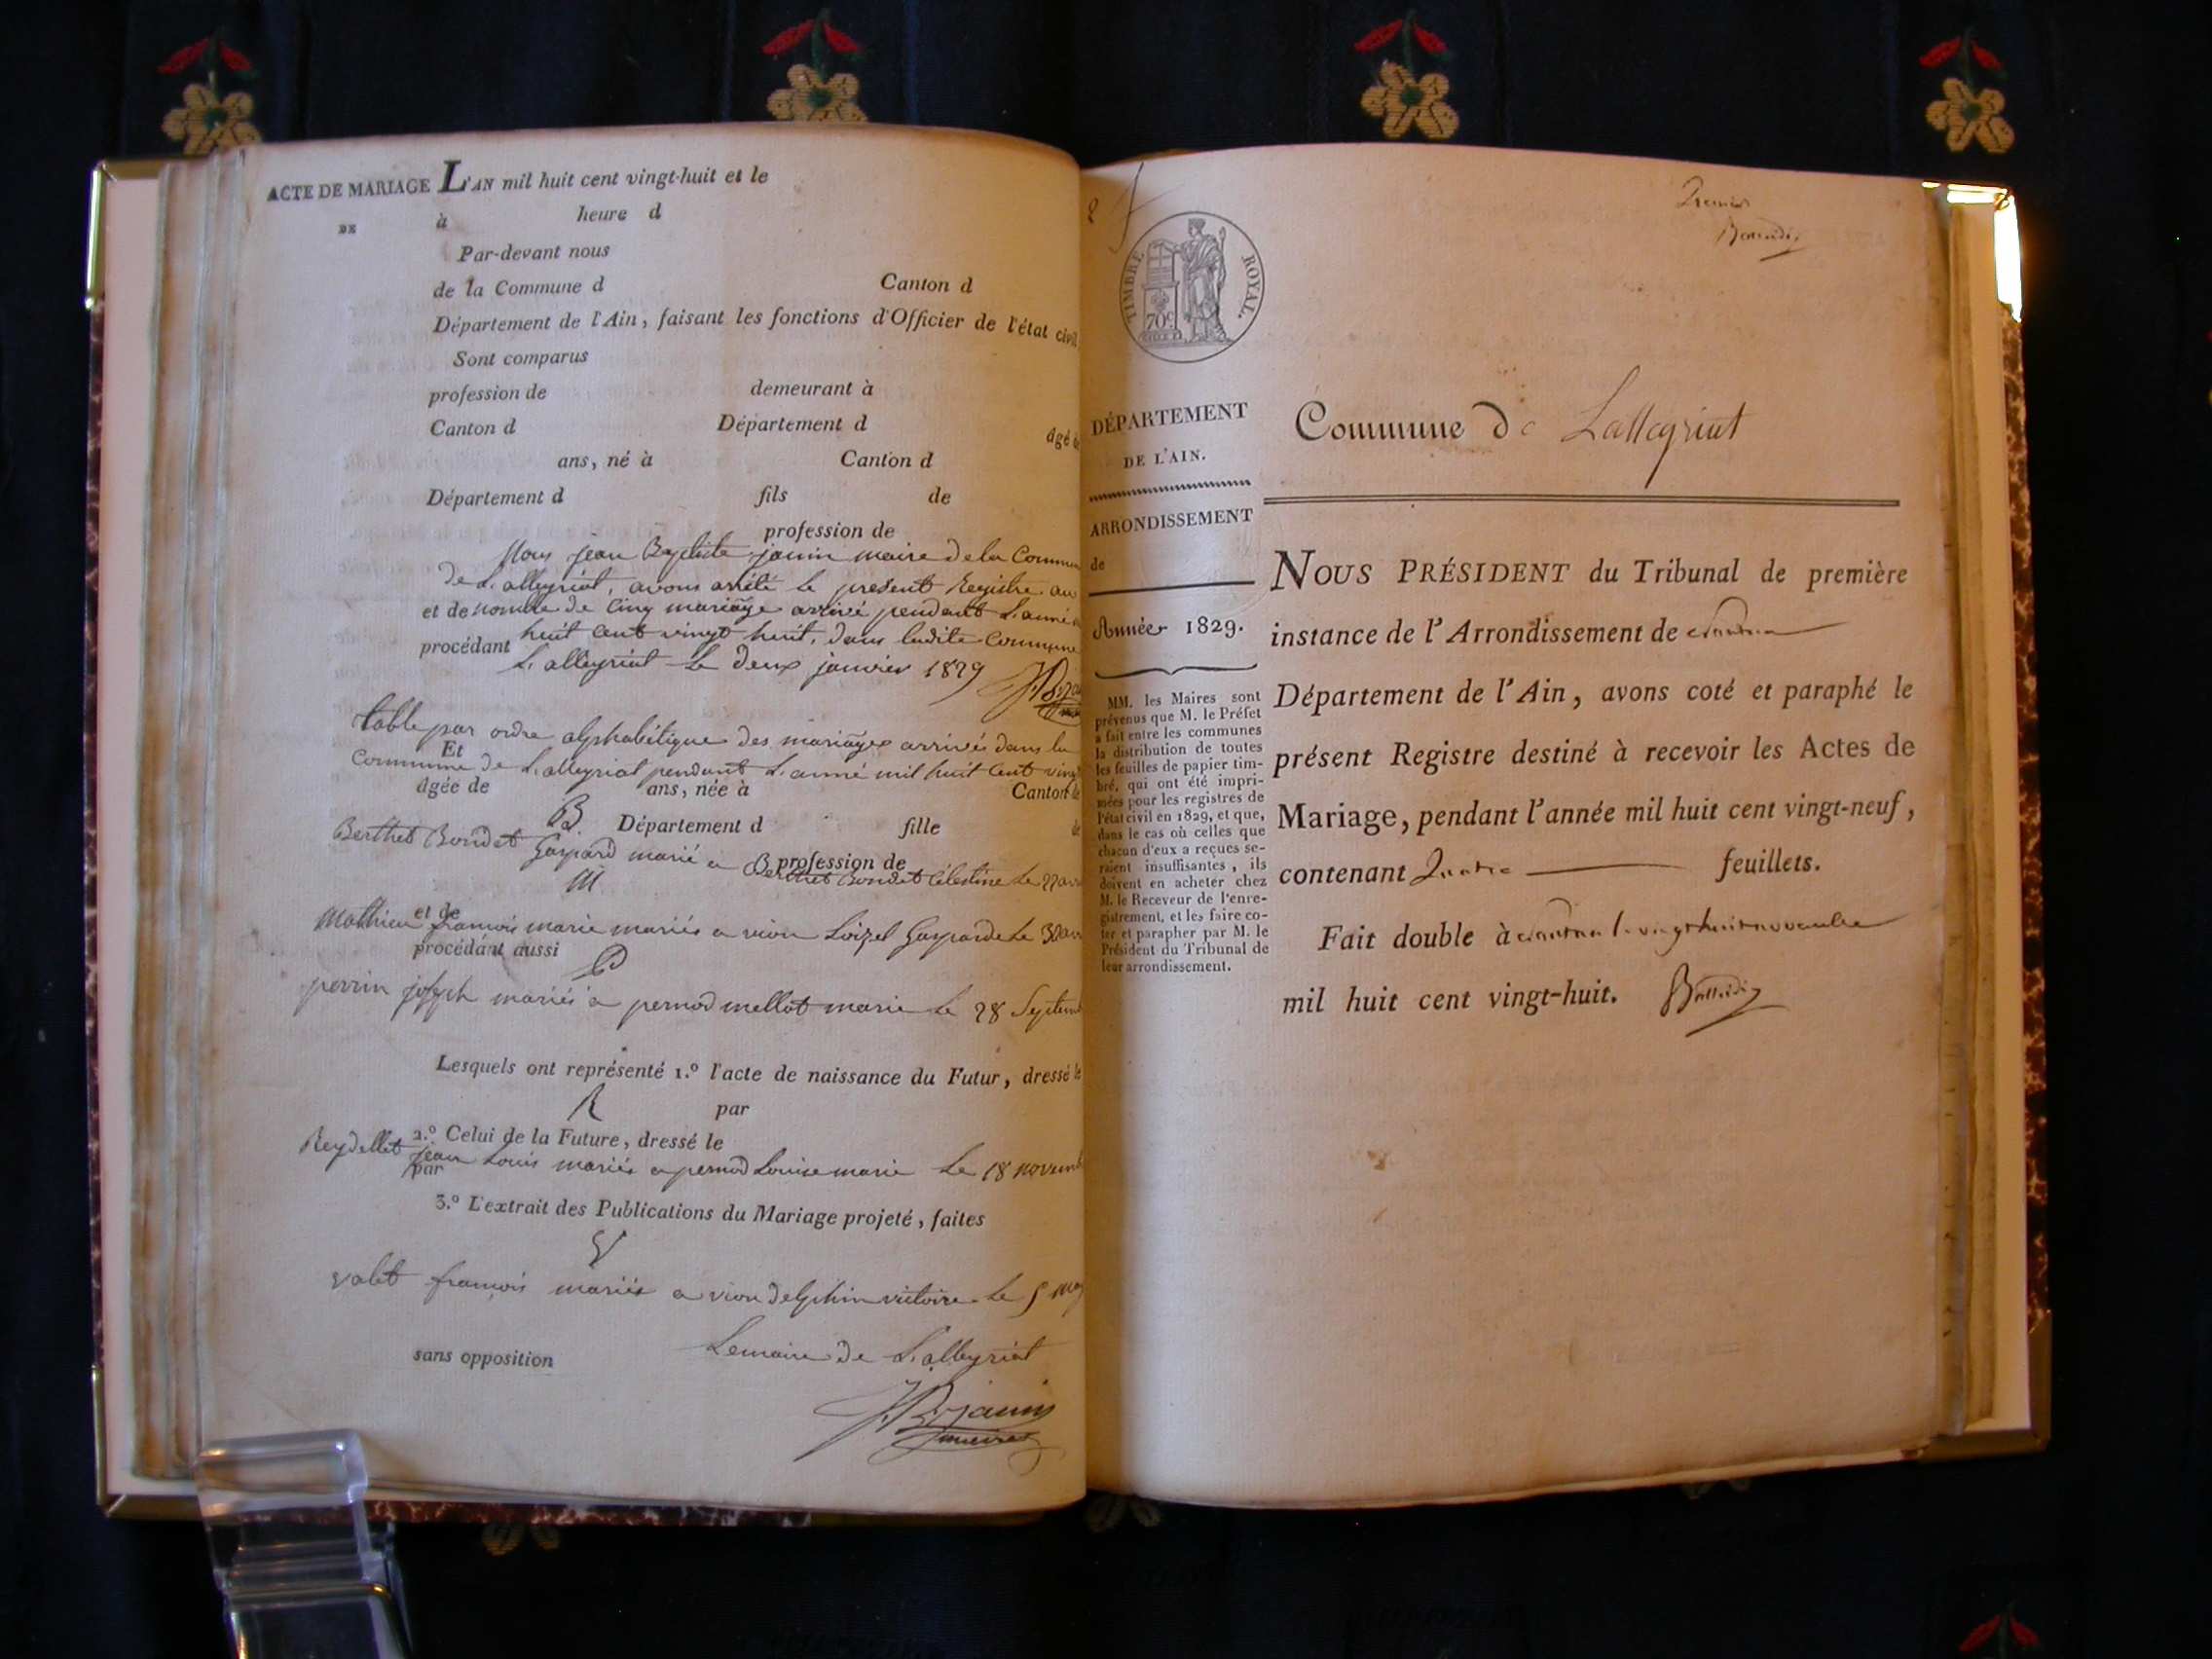 ACTE DE MARIAGE L'AN mil huit cent vingt-huit et le
DE à heure d
Par-devant nous
de la Commune d Canton d
Département de l'Ain, faisant les fonctions d'Officier de l'état civil
Sont comparus
profession de demeurant à
Canton d Département d âgé de
ans, né à Canton d
Département d fils de
profession de
Nous jean Baptiste janin maire de la Commune
de Lalleyriat, avons arrêté le present Registre au
et de nombre de Cinq mariage arrivé pendant L'anné
procédant huit cent vingt huit, dans ladite Commune
Lalleyriat le deux janvier 1829
table par ordre alphabétique des mariages arrivés dans la
Et
Commune de Lalleyriat pendant L'anné mil huit Cent vingt
âgée de ans, née à Canton de
B Département d fille de
Berthet Bondet Gaspard marié a Berthet Bondet Célestine Le
profession de
M
et de
Mathieu françois marie mariés a vion Loizel Gasparde Le
procédant aussi
P
perrin joseph mariés a pernod mellot marie Le 28 Septemb
Lesquels ont représenté 1.º l'acte de naissance du Futur, dressé le
R par
2.º Celui de la Future, dressé le
Reydellet jean Louis mariés a pernod Louise marie Le 18 novemb
par
3.º L'extrait des Publications du Mariage projeté, faites
V
valet françois mariés a vion delphin victoire Le 5
sans opposition Le maire de Lalleyriat
JB janin
maire
Premier
TIMBRE ROYAL.
70c
DÉPARTEMENT
DE L'AIN.
ARRONDISSEMENT
de
Année 1829.
MM. les Maires sont
prévenus que M. le Préfet
a fait entre les communes
la distribution de toutes
les feuilles de papier tim-
bré, qui ont été impri-
mées pour les registres de
l'état civil en 1829, et que,
dans le cas où celles que
chacun d'eux a reçues se-
raient insuffisantes, ils
doivent en acheter chez
M. le Receveur de l'enre-
gistrement, et les faire co-
ter et parapher par M. le
Président du Tribunal de
leur arrondissement.
Commune de Lalleyriat
NOUS PRÉSIDENT du Tribunal de première
instance de l'Arrondissement de Nantua
Département de l'Ain, avons coté et paraphé le
présent Registre destiné à recevoir les Actes de
Mariage, pendant l'année mil huit cent vingt-neuf,
contenant Quatre feuillets.
Fait double à Nantua le vingt huit novembre
mil huit cent vingt-huit.